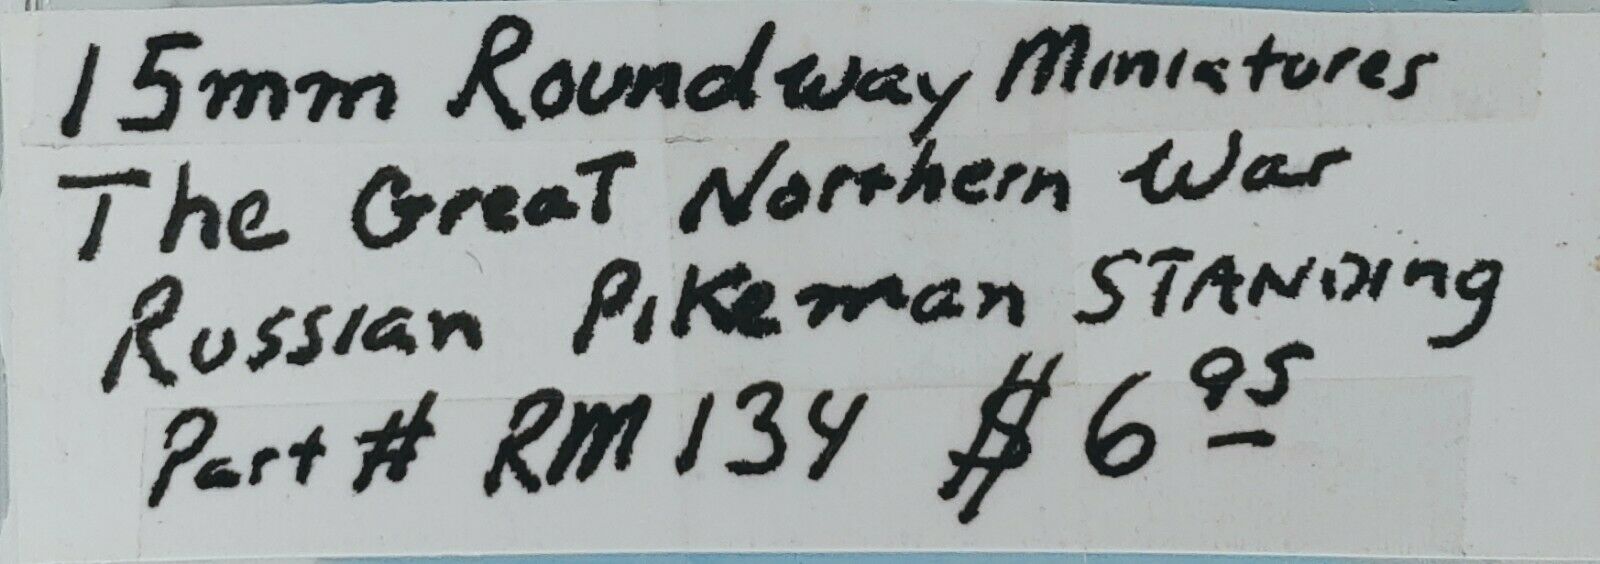 15mm Roundway Miniatures
The Great Northern War
Russian Pikeman STANDing
Part # RM 134 $ 6 95